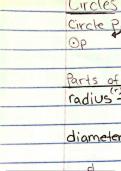 Circles
Circle P
⊙P
Parts of
radius -
diameter
d